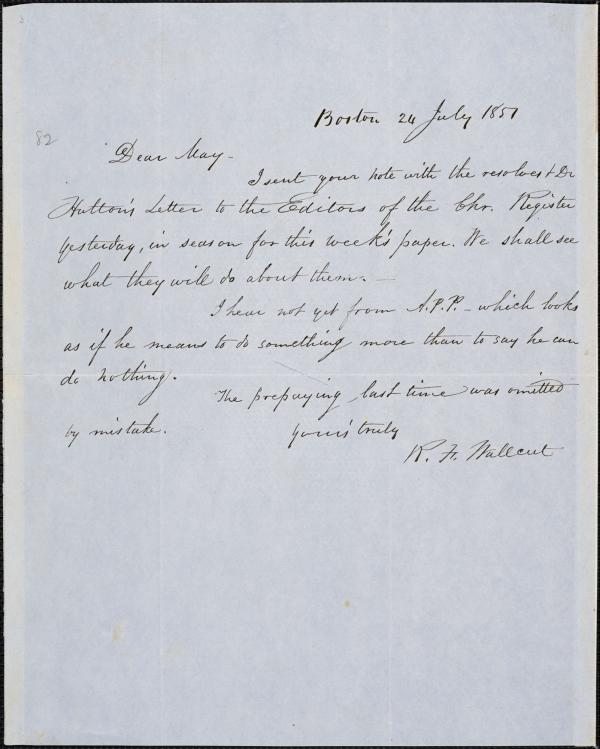 82
Boston 24 July 1851
Dear May -
I sent your note with the resolves & Dr
Hutton's Letter to the Editors of the Chr. Register
yesterday, in season for this week's paper. We shall see
what they will do about them. -
I hear not yet from A.P.P. - which looks
as if he means to do something more than to say he can
do nothing.
The prepaying last time was omitted
by mistake. Yours truly
R. F. Wallcut